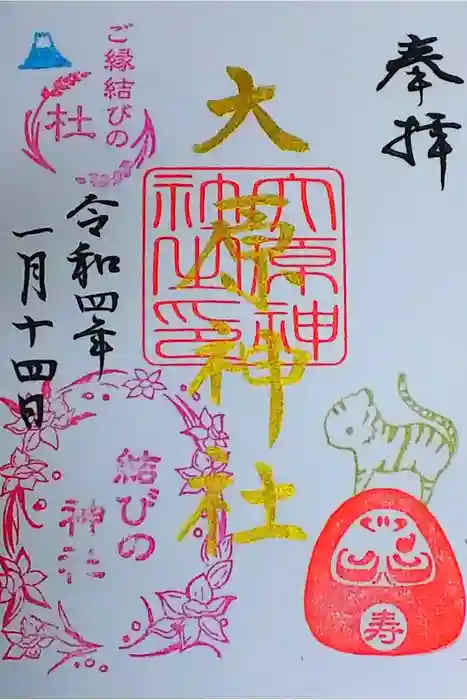 奉拝
大原神社
大原神社之印
ご縁結びの
杜
令和四年
一月十四日
結びの
神社
寿